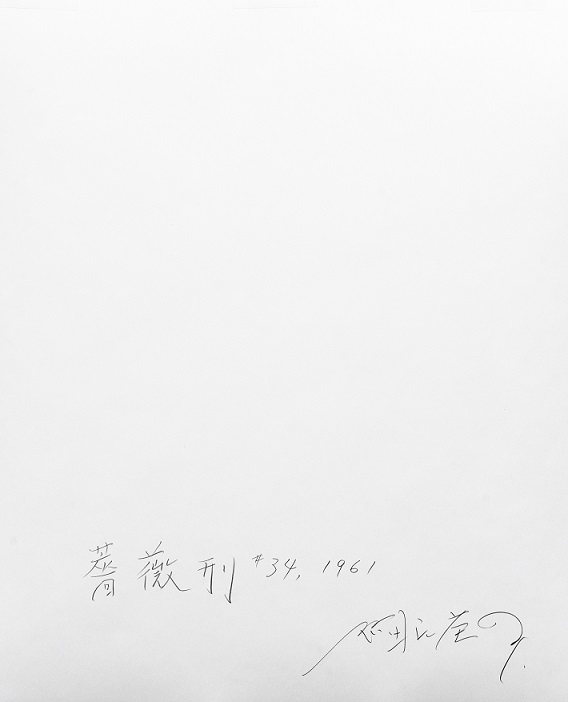 薔薇刑 #34, 1961
細江英公